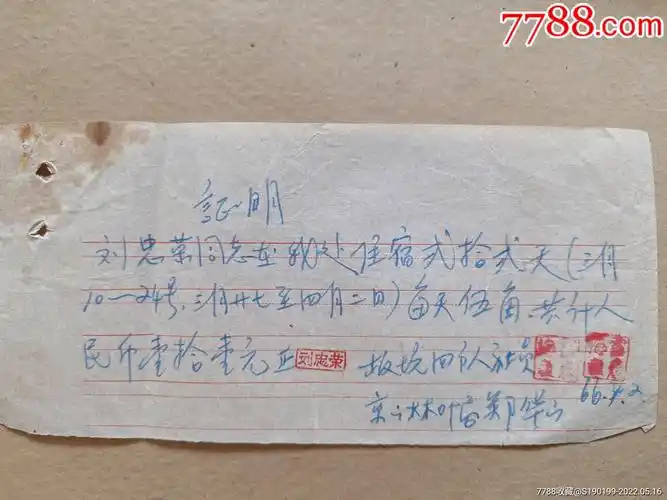 7788.com
证明
刘忠荣同志在我处住宿弍拾弍天(三月
10—24号,三月廿七至四月二日)每天伍角,共计人
民币壹拾壹元正 刘忠荣 板坑四队社员
郑华山 66.4.2
7788收藏@S190199-2022.05.16